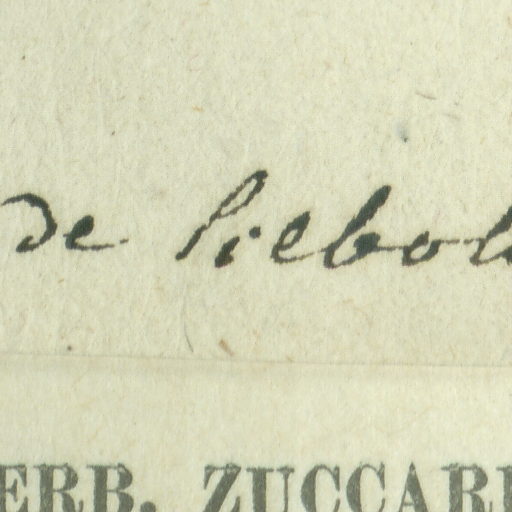 de Siebol
ERB. ZUCCARI